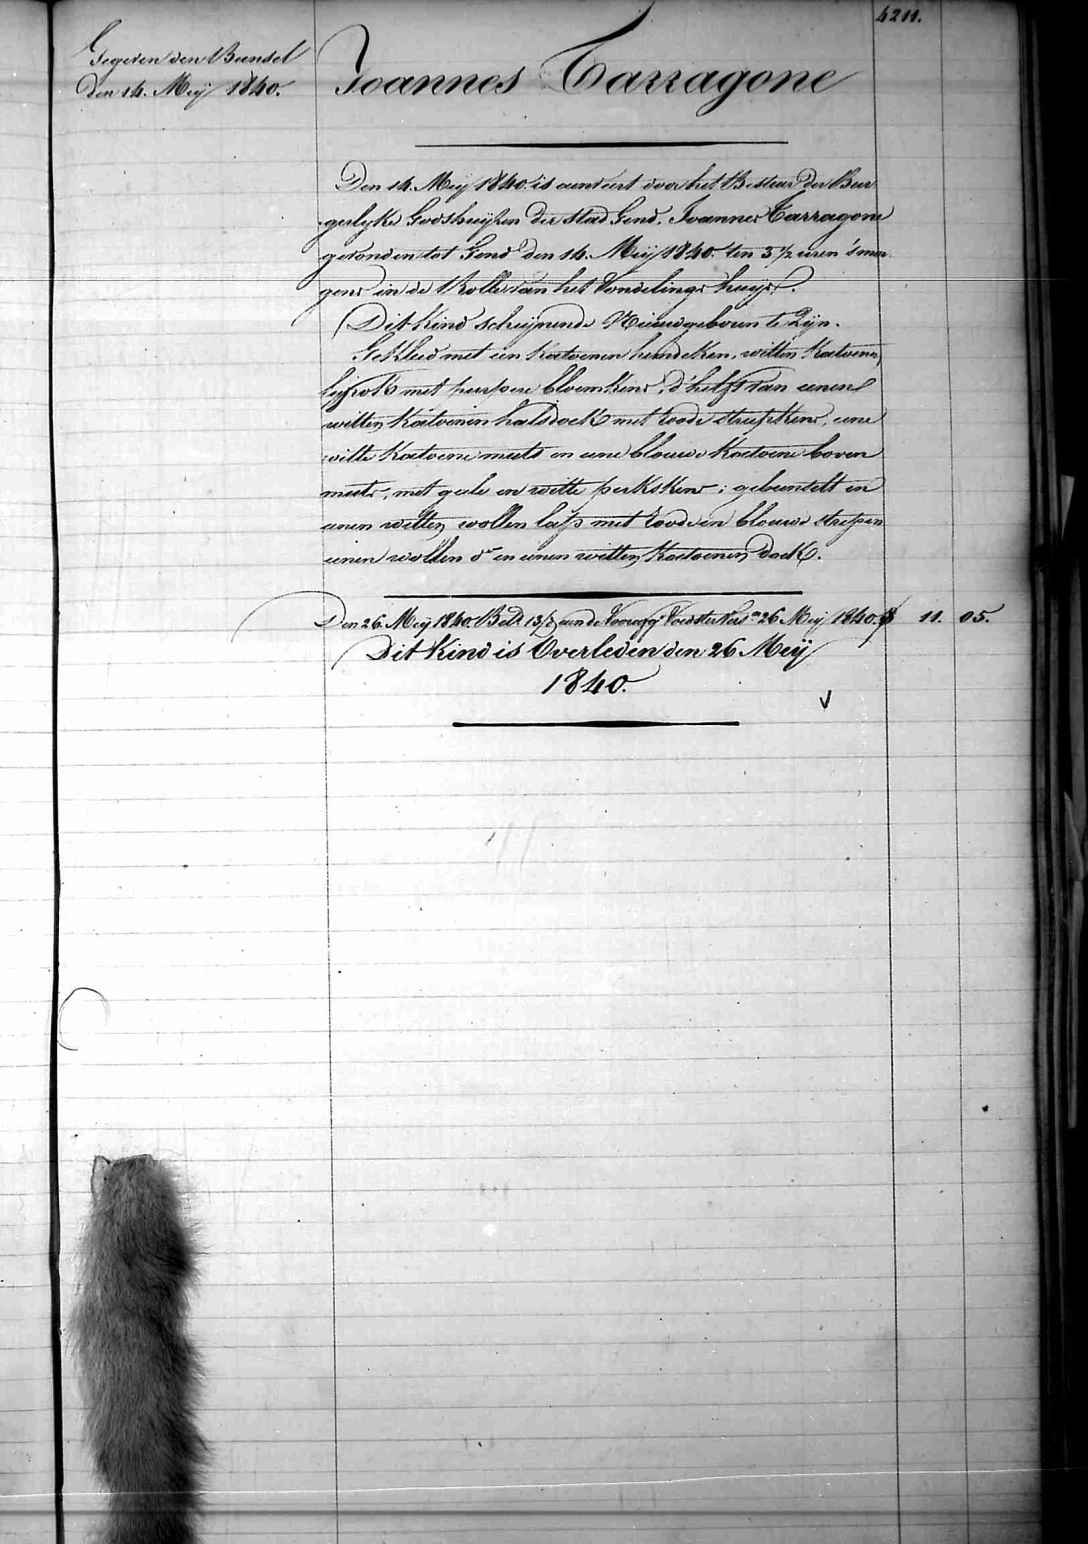 4211.
Gegeven den Bundel
den 14. Meij 1840.
Joannes Tarragone
Den 14. Meij 1840. is aenveert door het Bestuer der Bur-
gerlyke Godshuijsen der stad Gend, Joannes Tarragone
gevonden tot Gend den 14. Meij 1840. ten 3 1/2 uren 's mor-
gens in de Rolle van het Vondelings huijs.
Dit kind scheijnende Nieuwgeboren te zijn.
Gekleed met een katoenen hemdeken, witten katoenen
lijfrok met purpere bloemkens, d'helft van eenen
witten katoenen halsdoek met roode streepkens, eene
witte katoene muts en eene blauwe katoene boven
muts, met geele en witte perkskens; gebunselt in
eenen witten wollen laps met roode en blauwe strepen
eenen wollen do en eenen witten katoenen doek.
Den 26. Meij 1840. Bet. 13/ aen de Voedster 26 Meij 1840. 11. 05.
Dit Kind is Overleden den 26 Meij
1840.